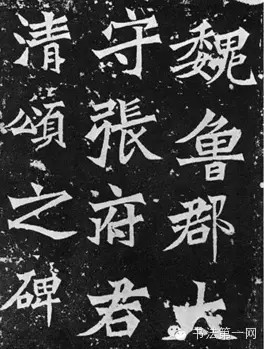 魏魯郡太
守張府君
清頌之碑
书法第一网